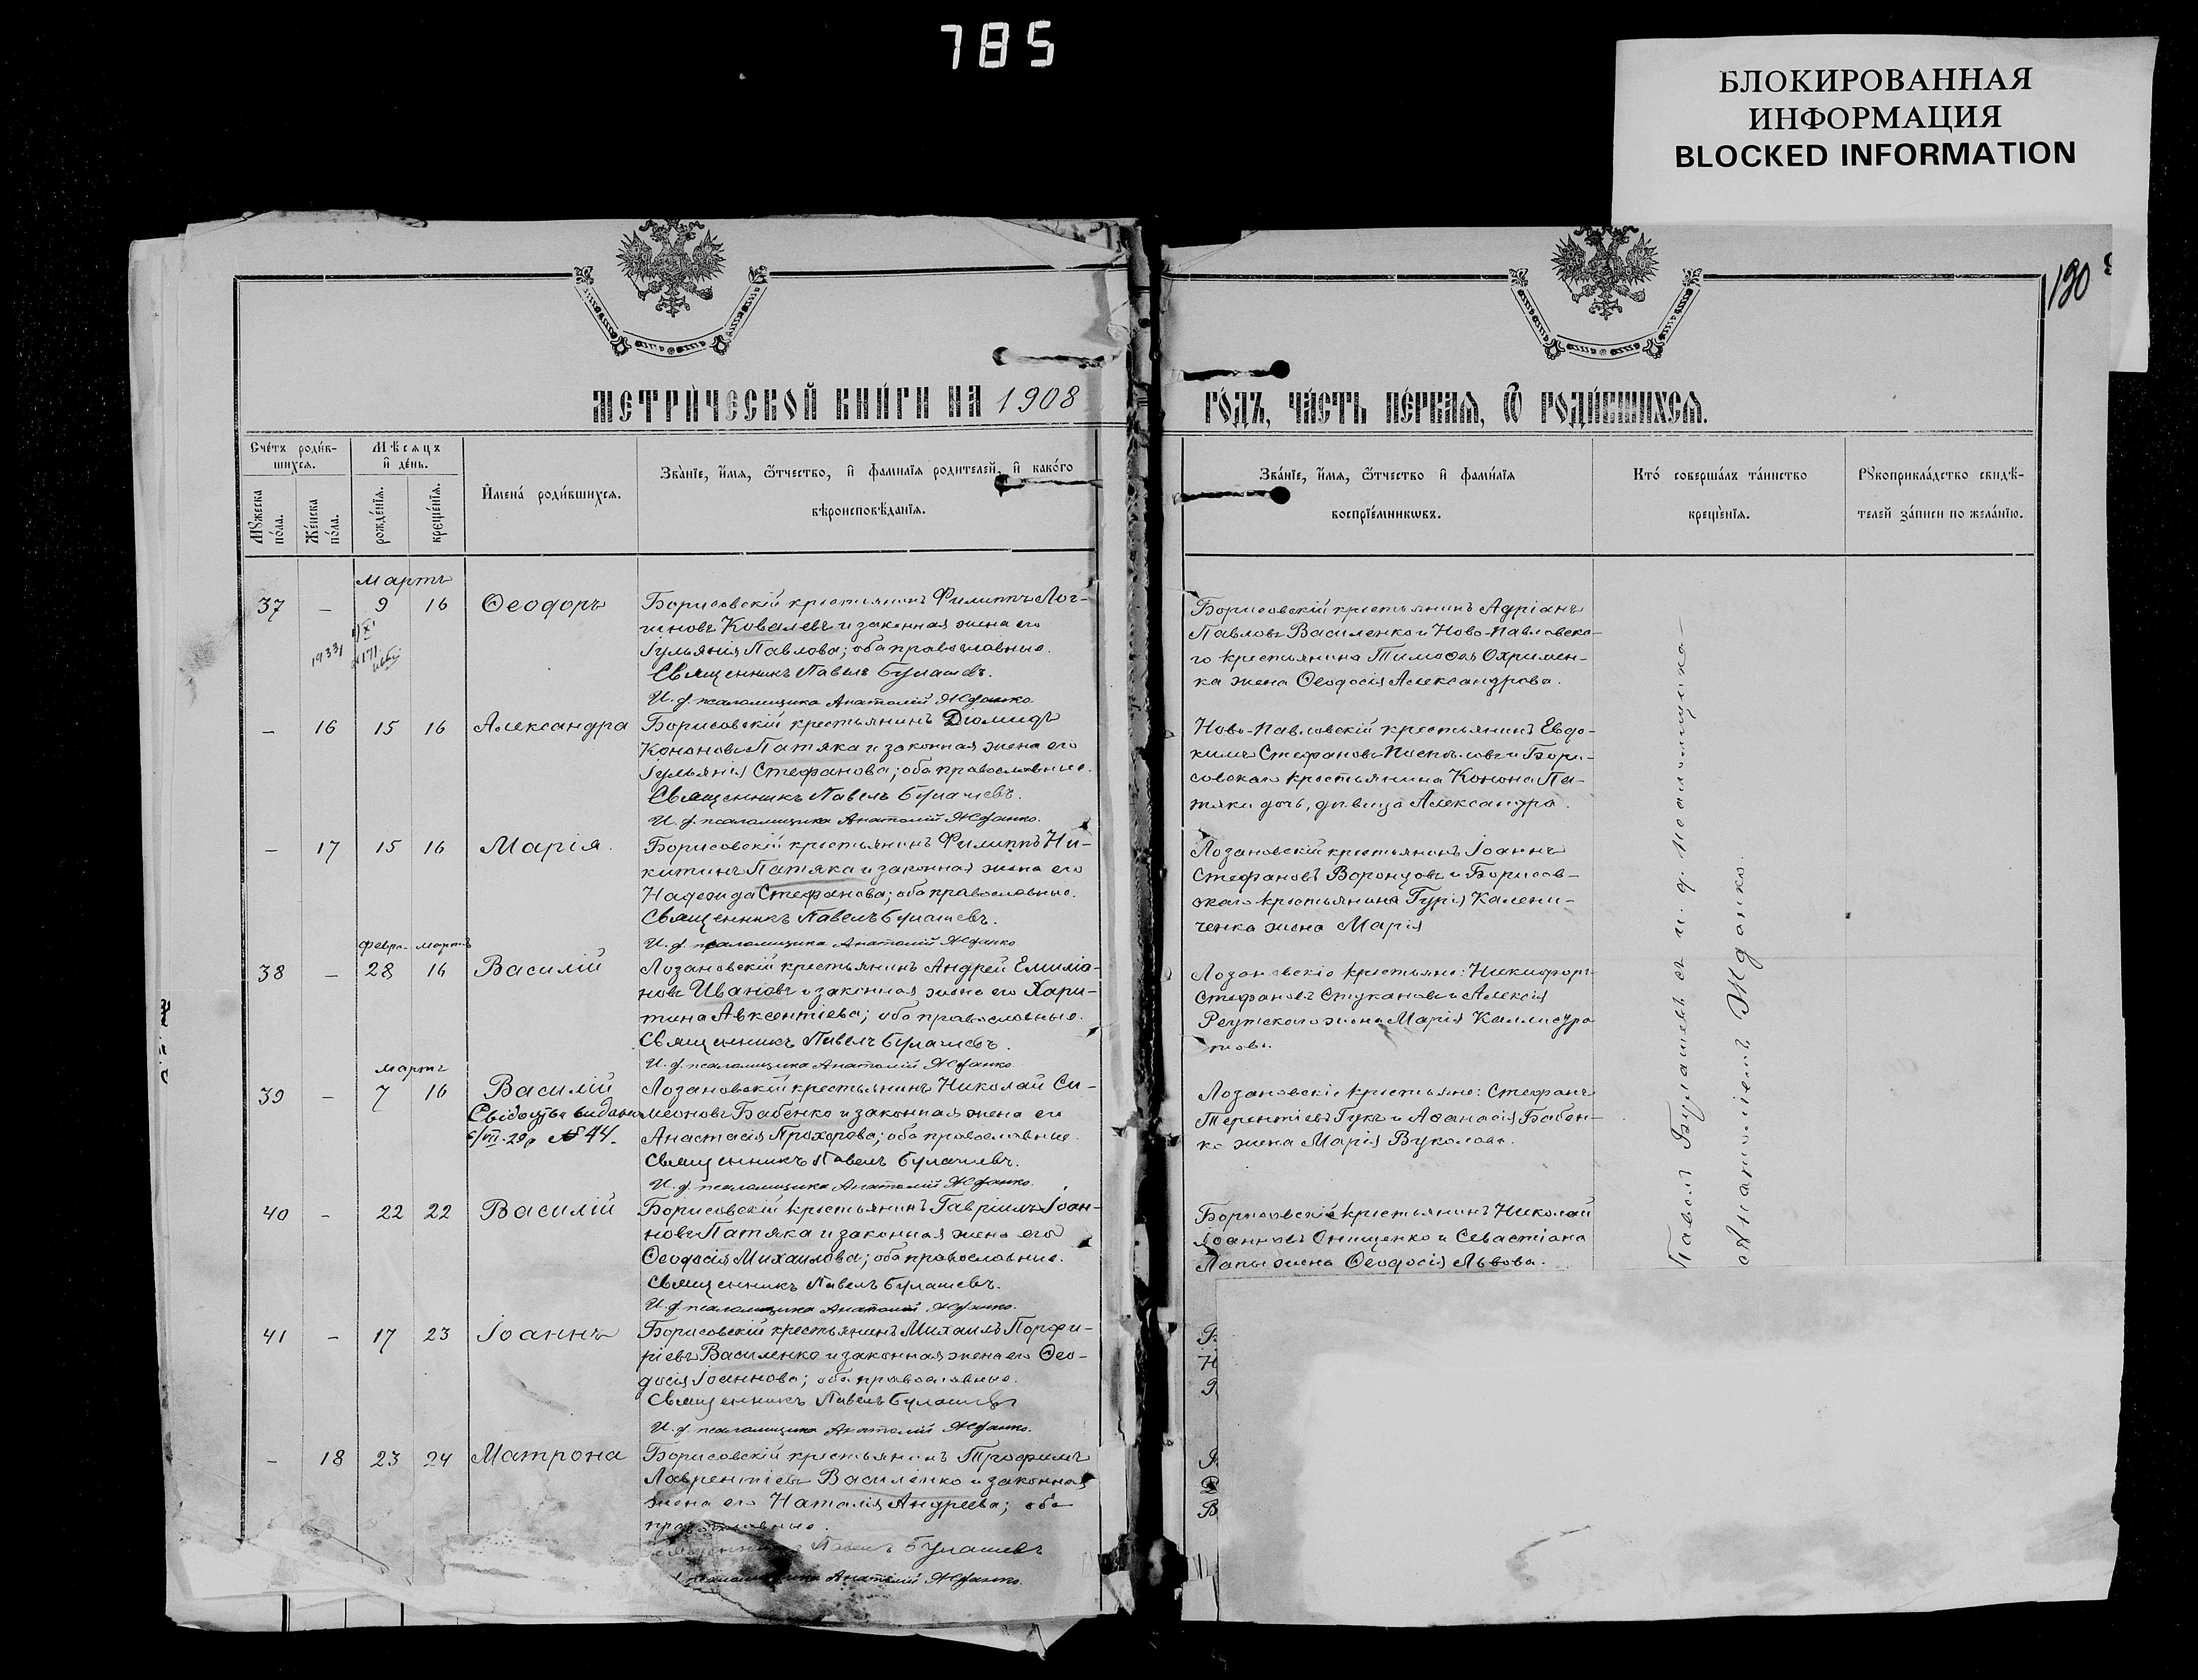 785
БЛОКИРОВАННАЯ
ИНФОРМАЦИЯ
BLOCKED INFORMATION
190
МЕТРИ́ЧЕСКОЙ КНИ́ГИ НА 1908
ГО́ДЪ, ЧА́СТЬ ПЕ́РВАЯ, Ѿ РОДИ́ВШИХСЯ.
Сче́тъ роди́в-
шихся.
Мѣсяцъ
и де́нь.
Мꙋжеска
по́ла.
Же́нска
по́ла.
рожде́нїя.
креще́нїя.
Имена́ роди́вшихся.
Зва́нїе, и́мя, ѻ́тчество, и фамилїя родителей, и како́го
вѣроисповѣданїя.
Зва́нїе, и́мя, ѻ́тчество и фами́лїя
воспрїе́мникѡвъ.
Кто́ соверша́лъ та́инство
креще́нїя.
Рꙋкоприкла́дство свидѣ́-
телей за́писи по жела́нїю.
Мартъ
37 — 9 16 Ѳеодоръ
Борисовскій крестьянинъ Филиппъ Лог-
гиновъ Ковалевъ и законная жена его
Іульянія Павлова; оба православные.
Священникъ Павелъ Булашевъ.
И. д. псаломщика Анатолій Жданко.
Борисовскій крестьянинъ Адріанъ
Павловъ Василенко и Ново-Павловска-
го крестьянина Тимоѳея Охримен-
ка жена Ѳеодосія Александрова.
— 16 15 16 Александра
Борисовскій крестьянинъ Діомидъ
Кононовъ Патяка и законная жена его
Іульянія Стефанова; оба православные.
Священникъ Павелъ Булашевъ.
И. д. псаломщика Анатолій Жданко.
Ново-Павловскій крестьянинъ Евдо-
кимъ Стефановъ и Бори-
совскаго крестьянина Конона Па-
тяки дочь, дѣвица Александра.
— 17 15 16 Марія.
Борисовскій крестьянинъ Филиппъ Ни-
китинъ Патяка и законная жена его
Надежда Стефанова; оба православные.
Священникъ Павелъ Булашевъ.
И. д. псаломщика Анатолій Жданко
Лозановскій крестьянинъ Іоаннъ
Стефановъ Воронцовъ и Борисов-
скаго крестьянина Гурія Калени-
ченка жена Марія
Февр. Мартъ
38 — 28 16 Василій
Лозановскій крестьянинъ Андрей Емиліа-
новъ Ивановъ и законная жена его Хари-
тина Авксентіева; оба православные.
Священникъ Павелъ Булашевъ.
И. д. псаломщика Анатолій Жданко
Лозановскіе крестьяне: Никифоръ
Стефановъ Стукановъ и Алексія
Реутскаго жена Марія Каллистра
това.
Мартъ
39 — 7 16 Василій
Свідоцтво видано
6/VII-29р № 44.
Лозановскій крестьянинъ Николай Си-
меоновъ Бабенко и законная жена его
Анастасія Прохорова; оба православные.
Священникъ Павелъ Булашевъ.
И. д. псаломщика Анатолій Жданко.
Лозановскіе крестьяне: Стефанъ
Терентіевъ Гукъ и Аѳанасія Бабен-
ко жена Марія Вуколова.
40 — 22 22 Василій
Борисовскій крестьянинъ Гавріилъ Іоан-
новъ Патяка и законная жена его
Ѳеодосія Михаилова; оба православные.
Священникъ Павелъ Булашевъ.
И. д. псаломщика Анатолій Жданко.
Борисовскіе крестьянинъ Николай
Іоанновъ Онищенко и Севастіана
Лапы жена Ѳеодосія Львова.
41 — 17 23 Іоаннъ
Борисовскій крестьянинъ Михаилъ Порфи-
ріевъ Василенко и законная жена его Ѳео-
досія Іоаннова; оба православные.
Священникъ Павелъ Булашевъ
И. д. псаломщика Анатолій Жданко.
— 18 23 24 Матрона
Борисовскій крестьянинъ Трофимъ
Лаврентіевъ Василенко и законная
жена его Наталія Андреева; оба
православные.
Священникъ Павелъ Булашевъ
псаломщика Анатолій Жданко.
Павелъ Булашевъ съ и. д. псаломщика
Анатоліемъ Жданко.